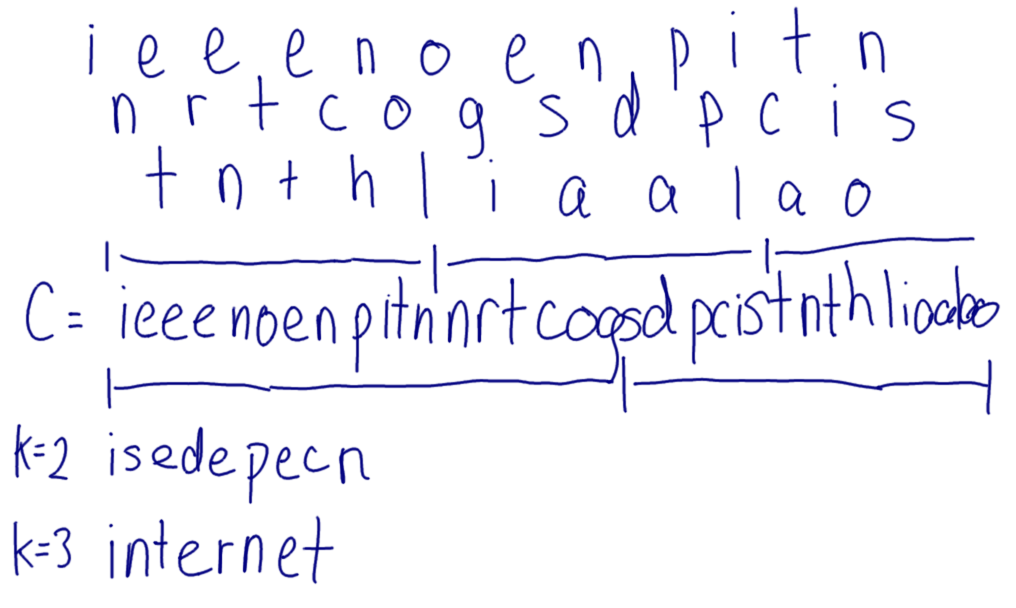 i e e e n o e n p i t n
n r t c o g s d p c i s
t n t h l i a a l a o
C= ieeenoenpitnnrtcogsdpcistnthliaalao
k=2 isedepecn
k=3 internet